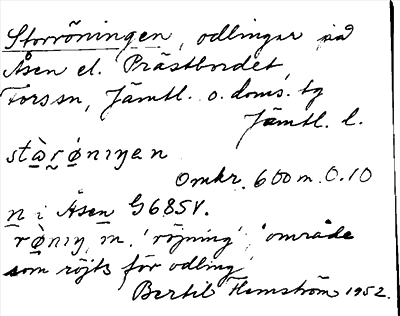 Storröningen, odlingar på
Åsen el. Prästbordet,
Forssn, Jämtl. o. doms. tg
Jämtl. l.
stà̱r̰ø̱nıŋen
Omkr. 600 m. O. 10
n i Åsen G685V.
rø̱̀nıŋ, m. 'röjning' 'område
som röjts för odling'
Bertil Flemström 1952.